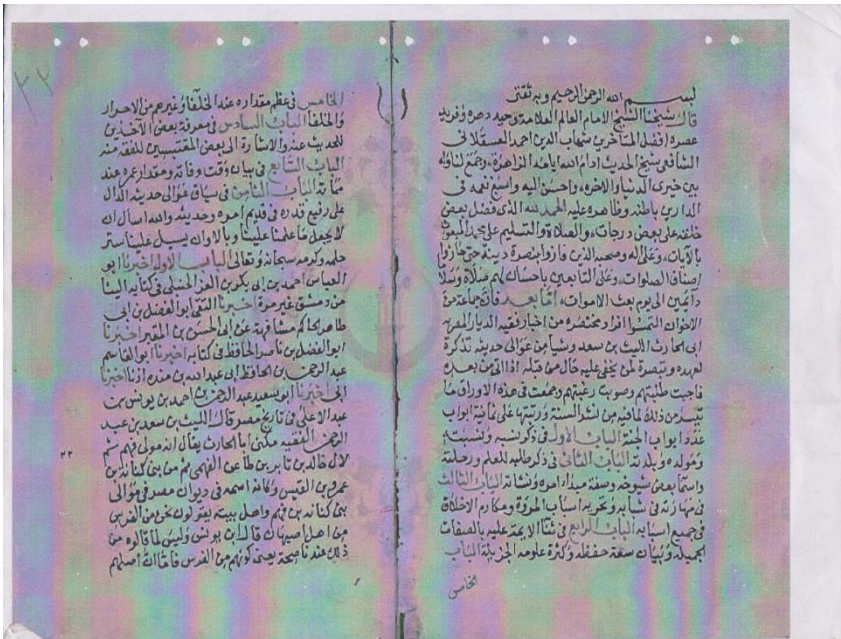 بسم الله الرحمن الرحيم وبه ثقتي
قال شيخنا الشيخ الامام العالم العلامة وحيد دهره وفريد
عصره افضل المتأخرين شهاب الدين احمد العسقلاني
الشافعي شيخ الحديث ادام الله ايامه الزاهرة وجمع لنا وله
بين خيري الدنيا والاخره واحسن اليه واسبغ نعمه في
الدارين باطنه وظاهرة عليه الحمد لله الذي فضل بعض
خلقه على بعض درجات والصلاة والتسليم على محمد المبعوث
بالآيات وعلى اله وصحبه الذين فازوا بنصرة دينه حتى حازوا
اصناف الصلوات وعلى التابعين باحسان لهم صلاة وسلاما
دائمين الى يوم بعث الاموات اما بعد فان جماعة من
الاخوان التمسوا افراد مختصره من اخبار فقيه الديار المصرية
ابي الحارث الليث بن سعد وشيا من عوالي حديثه تذكرة
لعهده وتبصرة لمن يخفى عليه حال من قبله اذا اتى من بعده
فاجبت طلبتهم وصوبت رغبتهم وجمعت في هذه الاوراق ما
تيسر من ذلك لما فيه من نشر السنة ورتبتها على ثمانية ابواب
عدد ابواب الجنة الباب الاول في ذكر نسبه ونسبته
ومولده وبلدته الباب الثاني في ذكر طلبه للعلم ورحلته
واسما بعض شيوخه وصفة مبدا امره ونشاته الباب الثالث
في مهارته في شبابه وتحريه اسباب المروة ومكارم الاخلاق
في جميع اسبابه الباب الرابع في ثنا الايمة عليه بالصفات
الجميله وبيان سعة حفظه وكثرة علومه الجزيلة الباب
الخامس
٣٢
الخامس في عظم مقداره عند الخلفا وغيرهم من الاحرار
والخلفا الباب السادس في معرفة بعض الآخذين
للحديث عنه والاشارة الى بعض المقتبسين للفقه منه
الباب السابع في بيان وقت وفاته ومقدار عمره عند
مماته الباب الثامن في سياق عوالي حديثه الدال
على رفيع قدره في قديم امره وحديثه والله اسال ان
لا يجعل ما علمنا علينا وبالا وان يسبل علينا ستر
حلمه وكرمه سبحانه وتعالى الباب الاول اخبرنا ابو
العباس احمد بن ابي بكر بن العز الحنبلي في كتابه الينا
من دمشق غير مرة اخبرنا التقي ابو الفضل بن ابي
طاهر الحاكم مشافهة عن ابي الحسن بن المقير اخبرنا
ابو الفضل بن ناصر الحافظ في كتابه اخبرنا ابو القاسم
عبد الرحمن بن الحافظ ابي عبد الله بن منده اذنا اخبرنا
ابي اخبرنا ابو سعيد عبد الرحمن بن احمد بن يونس بن
عبد الاعلى في تاريخ مصر قال الليث بن سعد بن عبد
الرحمن الفقيه مكنى ابا الحارث يقال انه مولى فهم ثم
لآل خالد بن ثابر بن ظاعن الفهمي ثم من بني كنانة بن
عمرو بن القيس وكان اسمه في ديوان مصر في موالي
بني كنانه بن فهم واهل بيته يقولون نحن من الفرس
من اهل اصبهان قال ابن يونس وليس لما قالوه من
ذلك عندنا صحة يعني كونهم من الفرس فاما ان اصلهم
٢٢